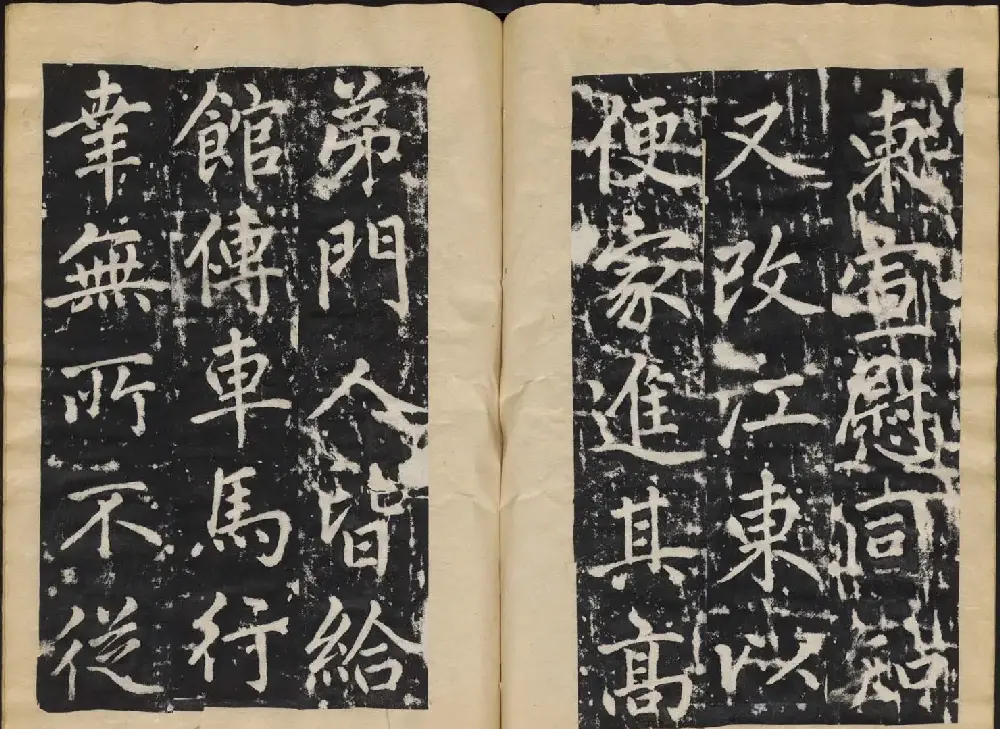 東宣慰同知
又改江東以
便家進其高
弟門人皆給
館傳車馬行
幸無所不從